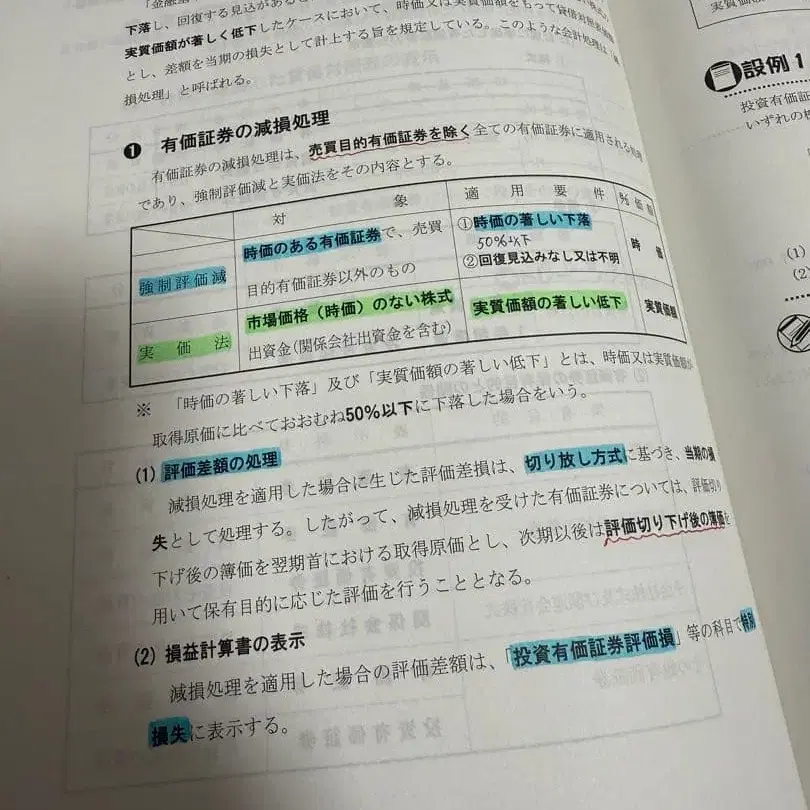 「金融
下落し、回復する見込があると
実質価額が著しく低下したケースにおいて、時価又は実質価額をもって貸借対照表価額
とし、差額を当期の損失として計上する旨を規定している。このような会計処理は「減
損処理」と呼ばれる。
❶ 有価証券の減損処理
有価証券の減損処理は、売買目的有価証券を除く全ての有価証券に適用される
であり、強制評価減と実価法をその内容とする。
対 象 適 用 要 件
強制評価減 時価のある有価証券で、売買 ①時価の著しい下落 時 価
50%以下
目的有価証券以外のもの ②回復見込みなし又は不明
実 価 法 市場価格（時価）のない株式 実質価額の著しい低下 実質価額
出資金(関係会社出資金を含む)
※ 「時価の著しい下落」及び「実質価額の著しい低下」とは、時価又は実質価額が
取得原価に比べておおむね50%以下に下落した場合をいう。
(1) 評価差額の処理
減損処理を適用した場合に生じた評価差損は、切り放し方式に基づき、当期の損
失として処理する。したがって、減損処理を受けた有価証券については、評価切り
下げ後の簿価を翌期首における取得原価とし、次期以後は評価切り下げ後の簿価を
用いて保有目的に応じた評価を行うこととなる。
(2) 損益計算書の表示
減損処理を適用した場合の評価差額は、「投資有価証券評価損」等の科目で特別
損失に表示する。
設例1
投資有価証
いずれの
(1)
(2)